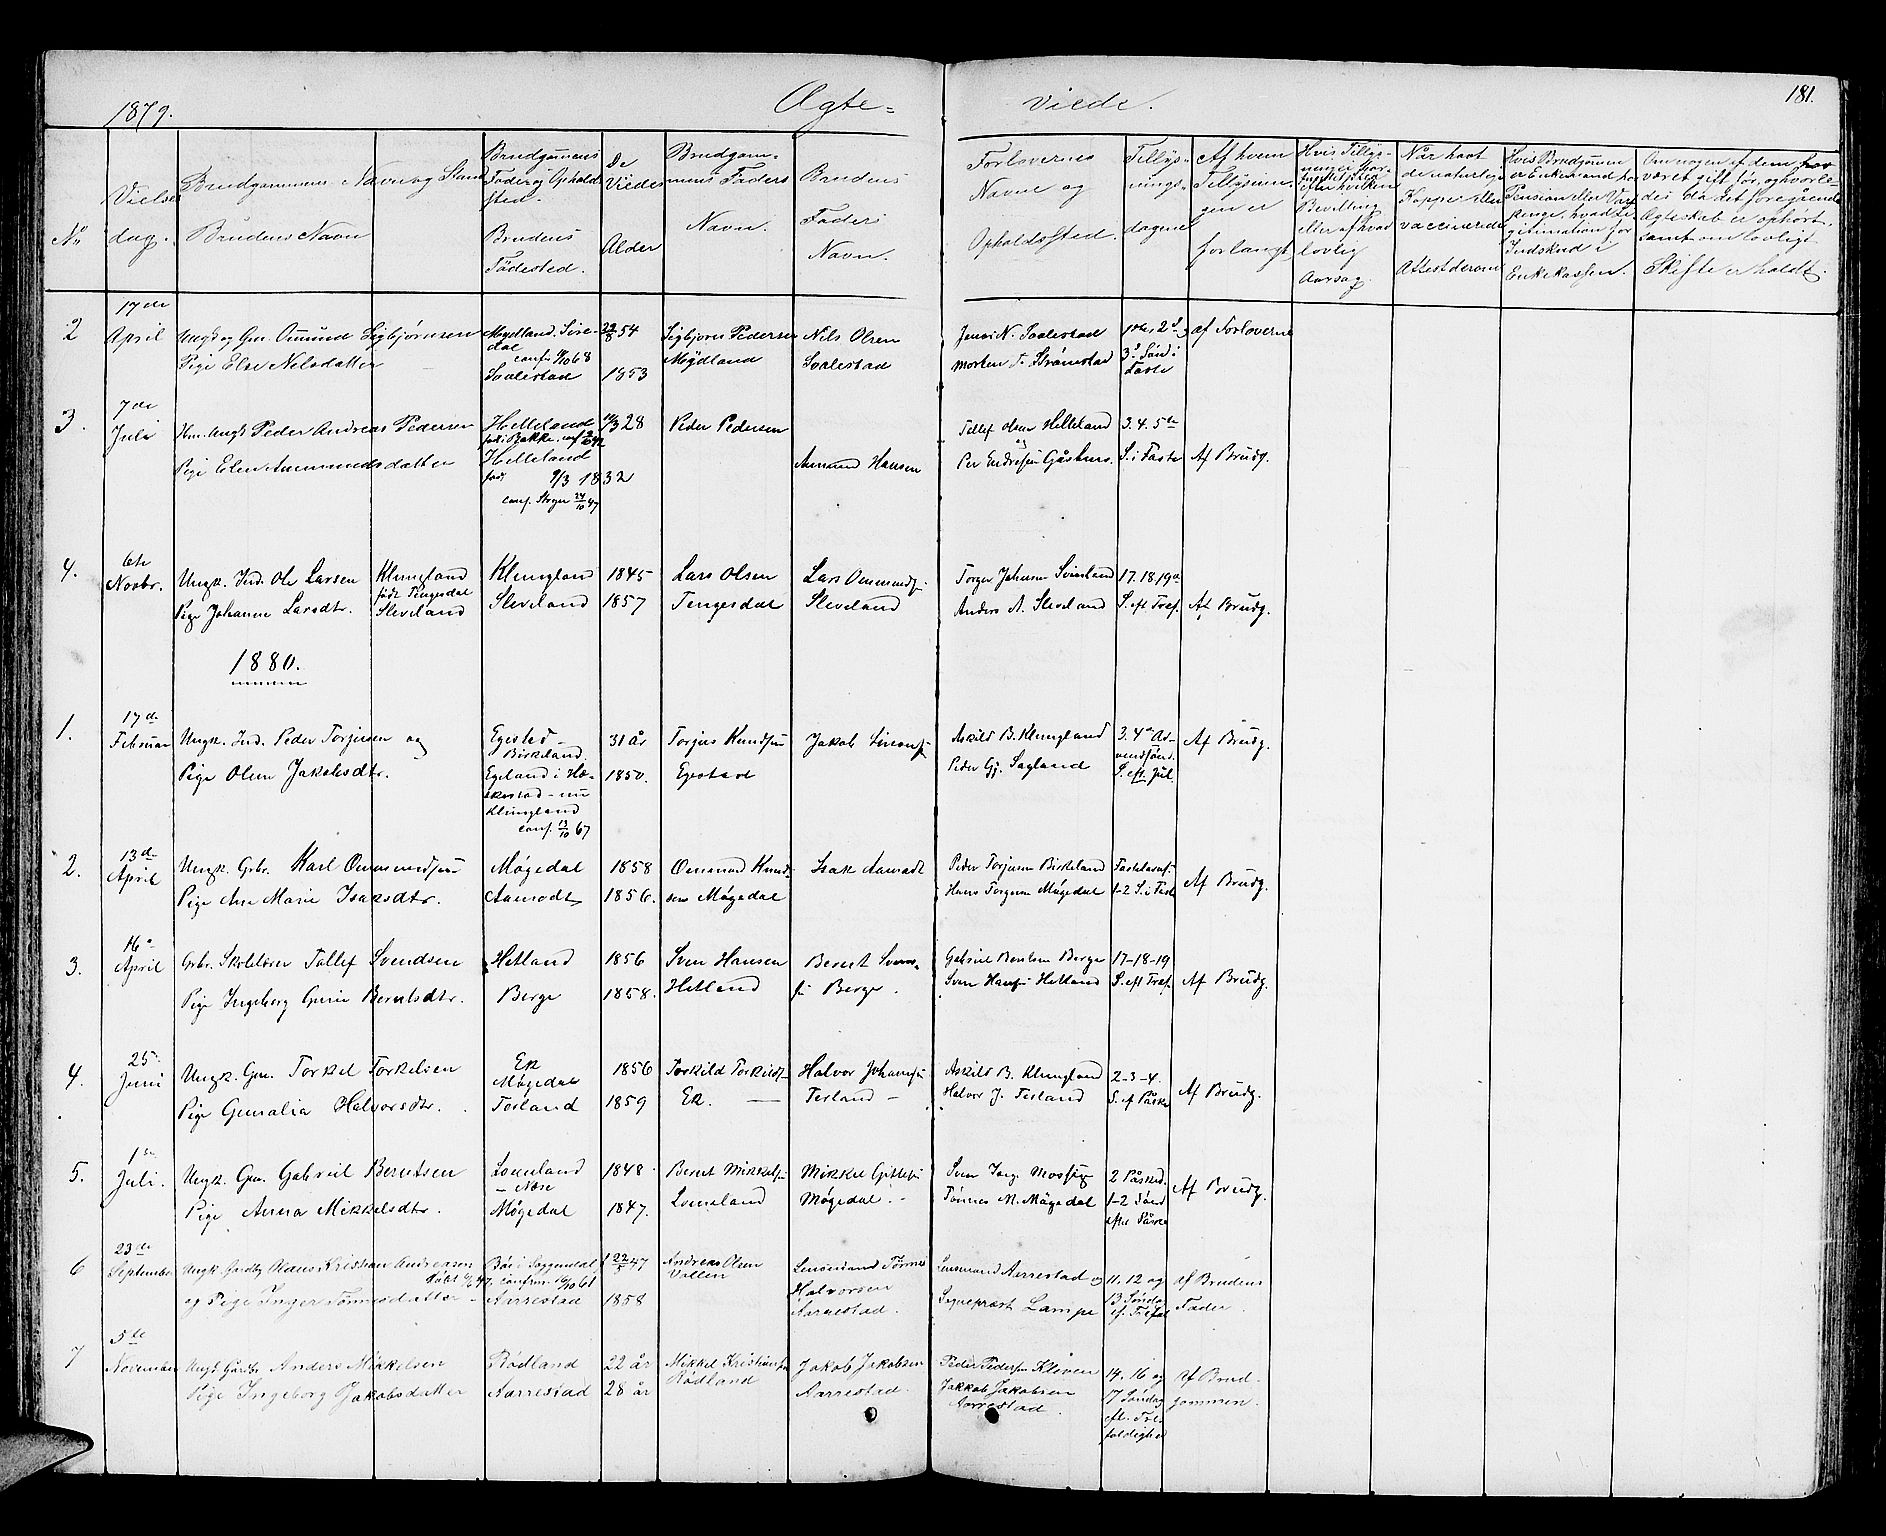 1879. Ægte= viede. 181.
No
Vielses dag.
Brudgommens Navn og Stand
Brudens Navn
Brudgommens Føde og Opholds sted.
Brudens Fødested.
De Viedes Alder
Brudgommens Faders Navn.
Brudens Faders Navn.
Forlovernes Navne og Opholdssted.
Tillysnings- dagene
Af hvem Tillysningen er forlangt
Bevilling eller af hvad lovlig Aarsag.
Når havt de naturlige Kopper eller vaccinerede
Attest derom
Hvis Brudgommen er Enkemand har Pension eller
Indskud i Enkekassen.
Om nogen af dem har været gift før, og hvorledes da det foregående Ægteskab er ophørt, samt om lovligt Skifte er holdt.
2 17de April
Ungk og Gm. Omund Sigbjørnsen
Pige Else Nilsdatter
Møydland. Siredal
conf. 68
Svalestad
54
1853
Sigbjørn Pedersen Møydland
Nils Olsen Svalestad
Jonas N. Svalestad
Morten T. Strømstad
3 Sønd i Faste
af Forloverne
3. 7de Juli
Ungk Peder Andreas Pedersen
Pige Elen Aanmundsdatter
Helleland
Helleland
født 9/3 1832
conf. 24/10 47
28
Peder Pedersen
Aanmund Hansen
Tellef Olsen Helleland
og
3. 4. 5te
S. i Faste
Af Brudg.
4. 6te Novbr.
Ungk. Ind. Ole Larsen
Pige Johanne Larsdtr.
Klungland født Tengesdal
Sleveland
Klungland
Sleveland
1845
1857
Lars Olsen Tengesdal
Lars Ommundsn Sleveland
Torger Johnsen
Anders A. Sleveland
17. 18. 19de
S. eft Tref.
Af Brudg.
1880.
1. 17de Februar
Ungk. Ind. Peder Torjusen og
Pige Oline Jakobsdtr.
Egested Birkeland.
Egeland i Hæskestad - nu Klungland
conf. 13/10 67
31 år
1850.
Torjus Knudsen Egestad
Jakob Simonsn
Askild B. Klungland
Peder Gj. Sagland
3. 4de Advendtsønd.
S. eft. Jul.
Af Brudg.
2. 13de April
Ungk. Gbr. Karl Ommundsen
Pige Ane Marie Isaksdtr.
Møgedal
Aamodt
1858
1856.
Ommund Knudsen Møgedal
Isak Aamodt
Peder Torjusen Birkeland
Hans Torgersen Møgedal
Fastelavns.
1-2 S. i Fast
Af Brudg.
3. 16de April
Gbr. Skolelærer Tollef Svendsen
Pige Ingeborg Gurie Berntsdtr.
Hetland
Berge
1856
1858.
Sven Hansen Hetland
Bernt Svensn Berge.
Gabriel Bentsen Berge
Sven Hansn Hetland
17-18-19
S. eft Tref.
Af Brudg.
4. 25 Juni
Ungk. Gm. Torkel Torkelsen
Pige Gunalia Halvorsdtr.
Ek Møgedal
Tesland
1856
1859
Torkild Torkildsn Ek.
Halvor Johansn Tesland -
Askild B. Klungland
Halvor J. Tesland
2-3-4.
S. ef Påske
Af Brudg.
5. 1ste Juli.
Ungk. Gm. Gabriel Berntsen
Pige Anna Mikkelsdtr.
Lomeland
- Næse
Møgedal
1848
1847.
Bernt Mikkelsn Lomeland
Mikkel Gittlesn Møgedal. -
Sven Jörg. Mosstig
Tønnes M. Møgedal
2 Påsked.
1-2 Sønd efter Påske
Af Brudg.
6 23de September
Ungk Gårdbr Aldus Kristian Andreasen
og Pige Inger Tønnesdatter -
Bø i Soggendal,
confirm. 61
Aarrestad
22 47
1858
Andreas Olsen
Lensmand Tønnes Halvorsen Aarrestad.
Lensmand Aarrestad og
Sogneprest Lampe
11. 12 og 13 Sønda ef. Trefol
af Brudens Fader.
7 5te November
Ungk. Gårdbr Anders Mikkelsen
Pige Ingeborg Jakobsdatter
Rødland
Aarrestad
22 år
28 år
Mikkel Kristiansn Rødland
Jakob Jakobsen Aarrestad.
Peder Pedersen Kleven
Jakkob Jakobsen Aarrestad.
14. 16 og 17 Søndag eft. Trefoldighed
af Brudgommen.